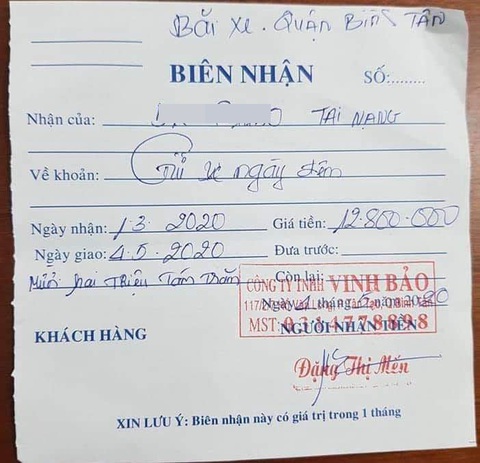 Bãi xe. Quận Bình Tân
BIÊN NHẬN
SỐ:........
Nhận của: TAI NẠNG
Về khoản: Giữ xe ngày đêm
Ngày nhận: 1.3.2020 Giá tiền: 12.800.000
Ngày giao: 4.5.2020 Đưa trước:
Mười hai Triệu Tám Trăm Còn lại:
CÔNG TY TNHH VINH BẢO
Ngày 4 tháng 5 năm 2020
MST: 0314778898
KHÁCH HÀNG NGƯỜI NHẬN TIỀN
Đặng Thị Mến
XIN LƯU Ý: Biên nhận này có giá trị trong 1 tháng